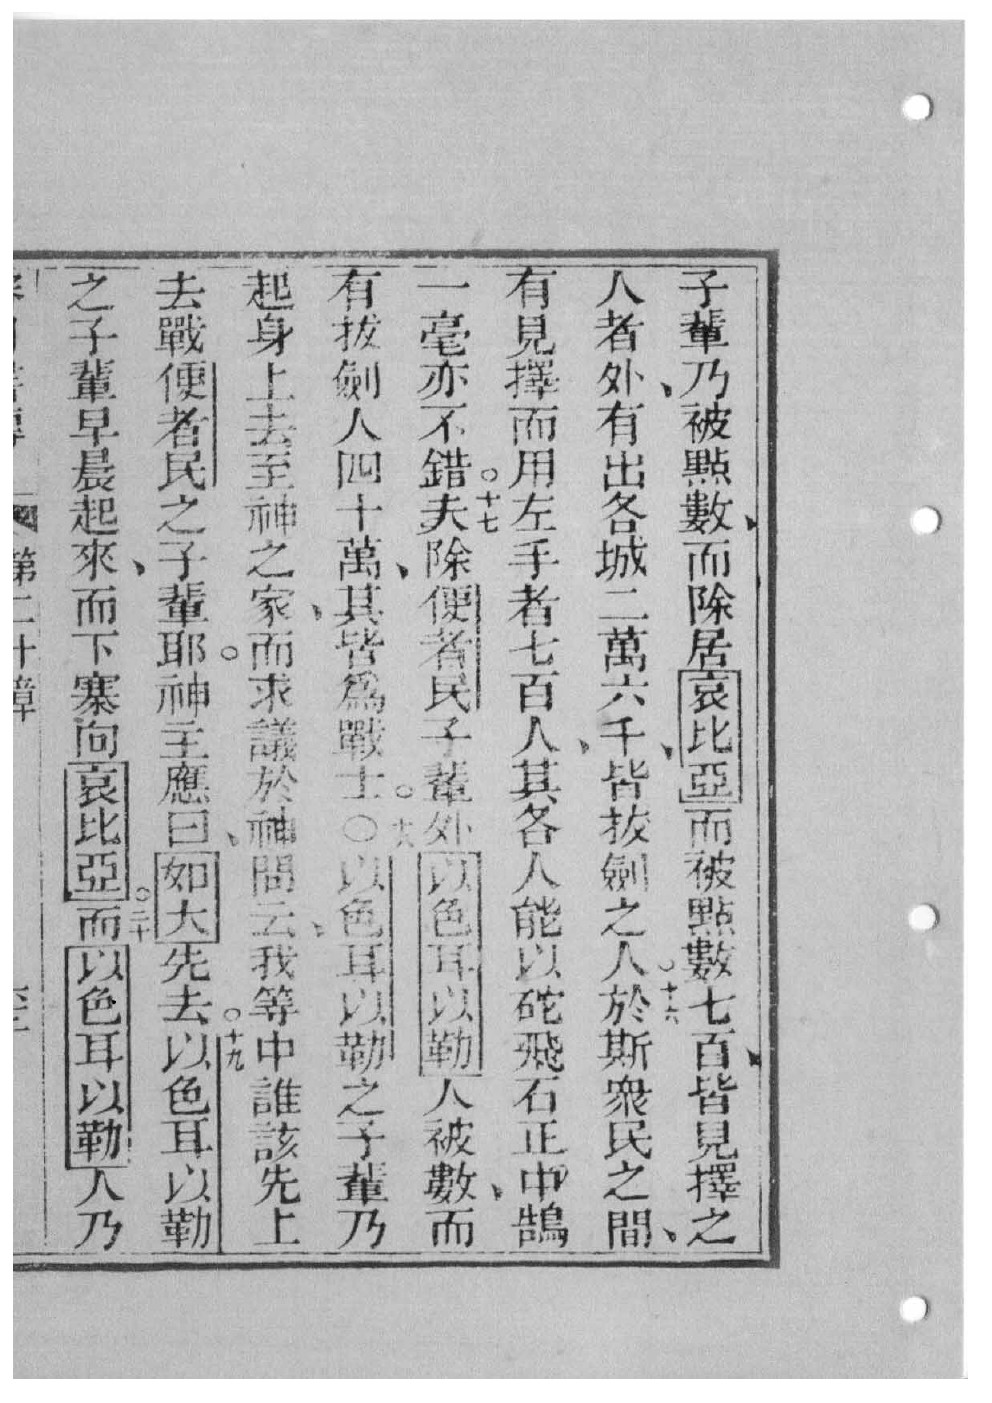 子輩乃被點數、而除居哀比亞而被點數七百、皆見擇之
人者外、有出各城二萬六千、皆拔劍之人。十六於斯衆民之間、
有見擇而用左手者七百人、其各人能以砣飛石正中鵠
一毫亦不錯。十七夫除便者民子輩外以色耳以勒人被數、而
有拔劍人四十萬、其皆爲戰士。○十八以色耳以勒之子輩乃
起身上去至神之家、而求議於神問云、我等中誰該先上
去戰便者民之子輩耶。神主應曰、如大先去。十九以色耳以勒
之子輩早晨起來、而下寨向哀比亞。二十而以色耳以勒人乃
第二十章